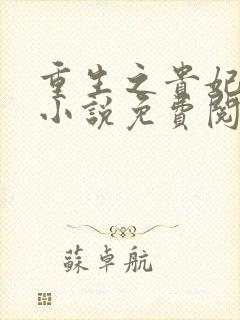 重生之貴妃
小說免費閱
蘇卓航